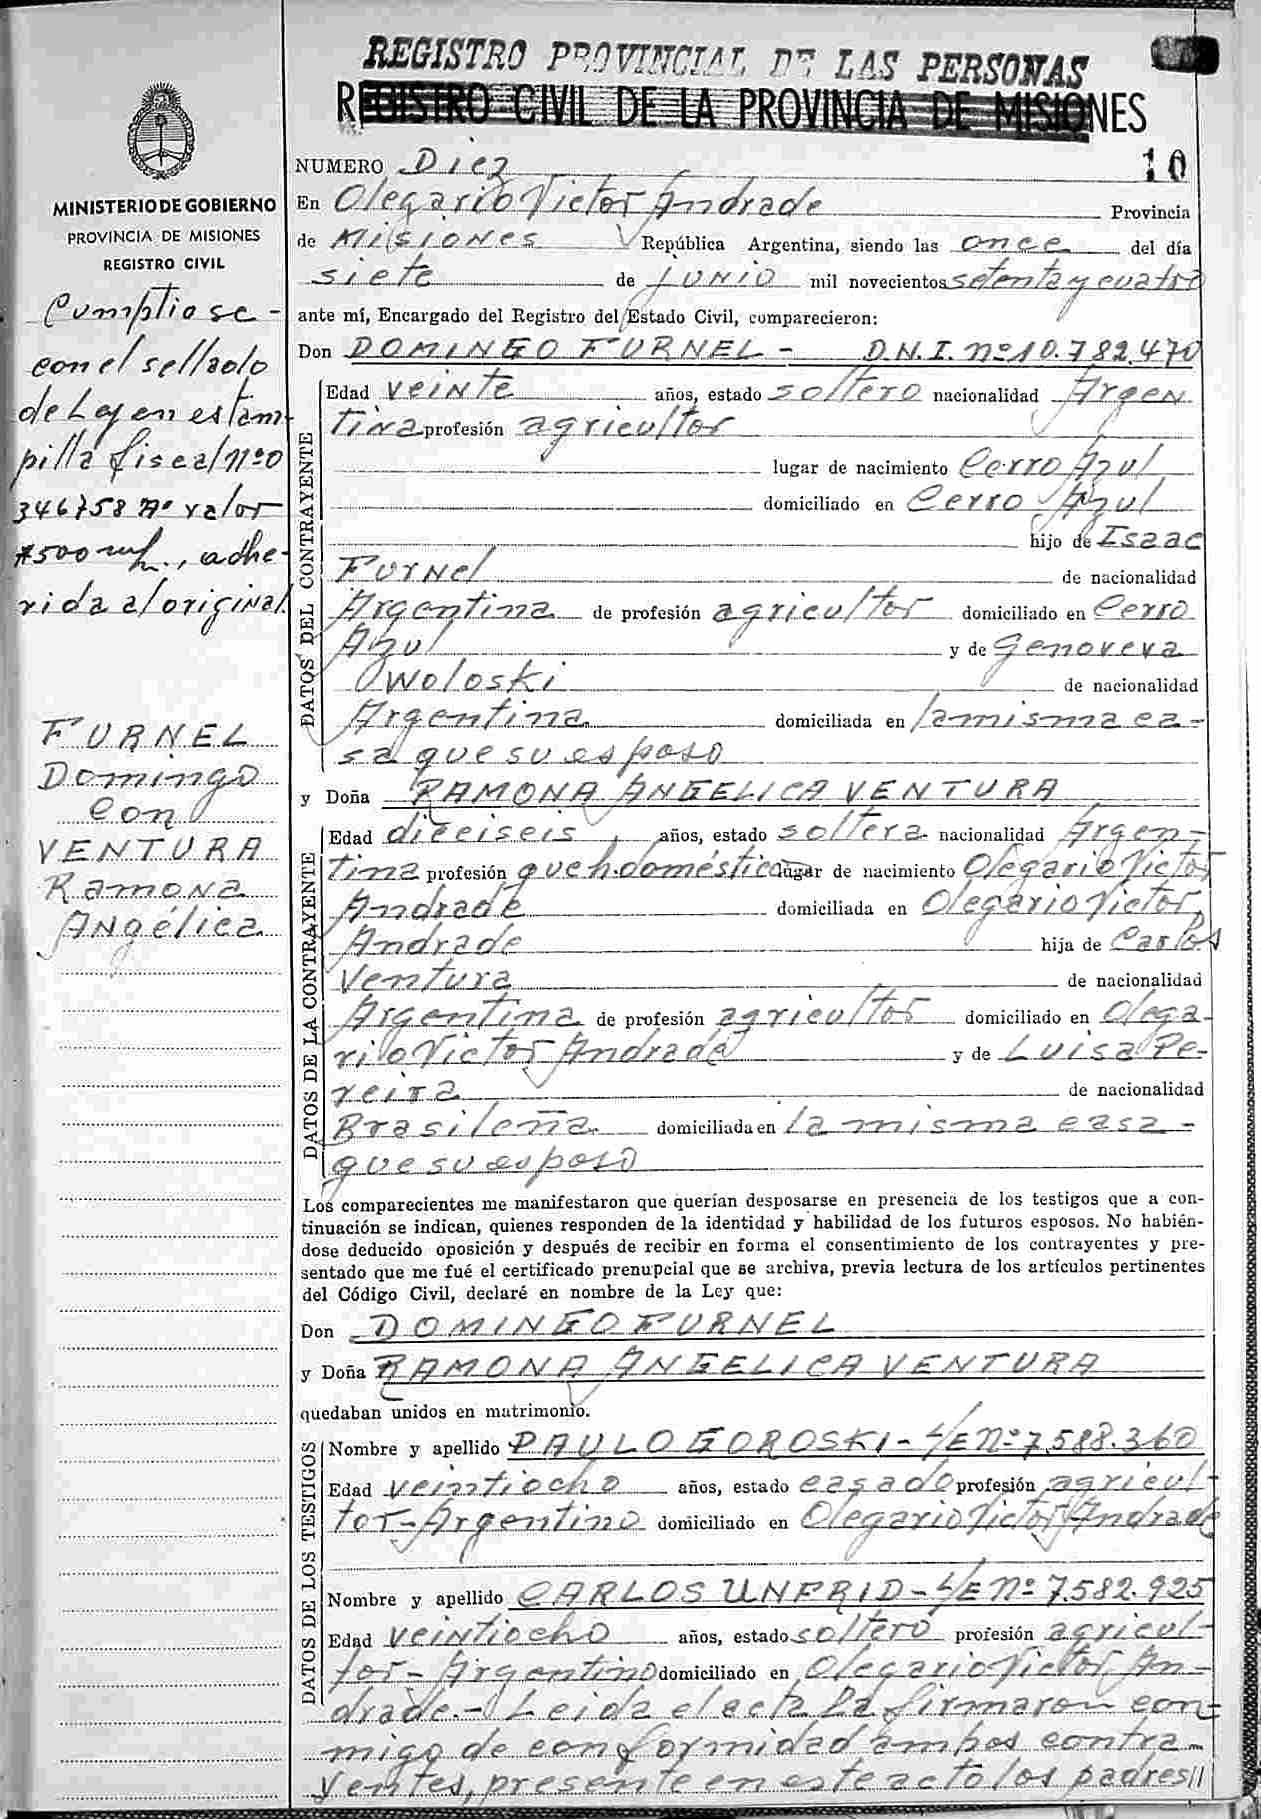 REGISTRO PROVINCIAL DE LAS PERSONAS
REGISTRO CIVIL DE LA PROVINCIA DE MISIONES
MINISTERIO DE GOBIERNO
PROVINCIA DE MISIONES
REGISTRO CIVIL
Cumplio se-
con el sellado
de Ley en estam-
pilla fiscal nº0
346758 Aº valor
$500 m/n., adhe-
rida al original.
FURNEL
Domingo
con
VENTURA
Ramona
Angélica
NUMERO Diez 10
En Olegario Victor Andrade Provincia
de Misiones República Argentina, siendo las once del día
siete de junio mil novecientos setenta y cuatro
ante mí, Encargado del Registro del Estado Civil, comparecieron:
Don DOMINGO FURNEL - D.N.I. nº 10.782.470
DATOS DEL CONTRAYENTE
Edad veinte años, estado soltero nacionalidad Argen
tina profesión agricultor
lugar de nacimiento Cerro Azul
domiciliado en Cerro Azul
hijo de Isaac
Furnel de nacionalidad
Argentina de profesión agricultor domiciliado en Cerro
Azul y de Genoveva
Woloski de nacionalidad
Argentina domiciliada en la misma ca-
sa que su esposo
y Doña RAMONA ANGELICA VENTURA
DATOS DE LA CONTRAYENTE
Edad dieciseis, años, estado soltera nacionalidad Argen-
tina profesión queh.domésticos lugar de nacimiento Olegario Victor
Andrade domiciliada en Olegario Victor
Andrade hija de Carlos
Ventura de nacionalidad
Argentina de profesión agricultor domiciliado en Olega-
rio Victor Andrade y de Luisa Pe-
reira de nacionalidad
Brasileña domiciliada en la misma casa-
que su esposo
Los comparecientes me manifestaron que querían desposarse en presencia de los testigos que a con-
tinuación se indican, quienes responden de la identidad y habilidad de los futuros esposos. No habién-
dose deducido oposición y después de recibir en forma el consentimiento de los contrayentes y pre-
sentado que me fué el certificado prenupcial que se archiva, previa lectura de los artículos pertinentes
del Código Civil, declaré en nombre de la Ley que:
Don DOMINGO FURNEL
y Doña RAMONA ANGELICA VENTURA
quedaban unidos en matrimonio.
DATOS DE LOS TESTIGOS
Nombre y apellido PAULO GOROSKI - L/E Nº 7.588.360
Edad veintiocho años, estado casado profesión agricul-
tor - Argentino domiciliado en Olegario Victor Andrade
Nombre y apellido CARLOS UNFRID - L/E Nº 7.582.925
Edad veintiocho años, estado soltero profesión agricul-
tor - Argentino domiciliado en Olegario Victor An-
drade.- Leida el acta la firmaron con-
migo de conformidad ambos contra-
yentes, presente en este acto los padres//